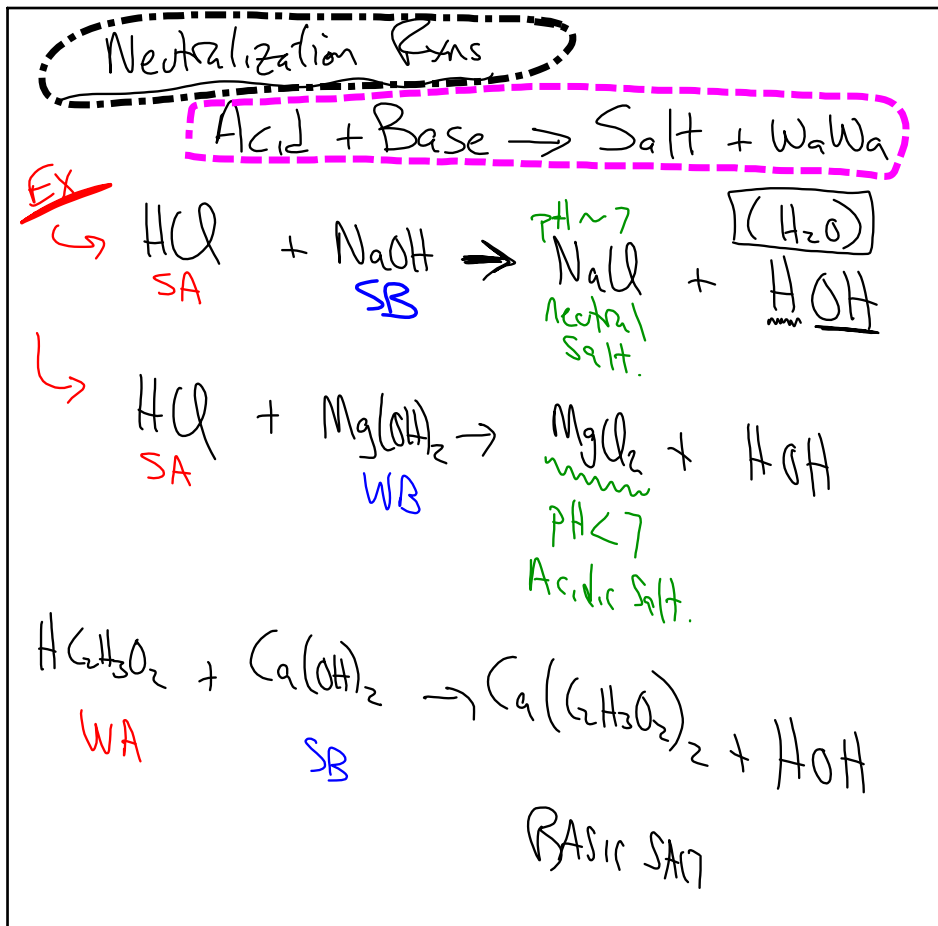 Neutralization Rxns
Acid + Base → Salt + WaWa
Ex
pH ~ 7 (H₂O)
HCl + NaOH → NaCl + HOH
SA SB neutral
Salt.
HCl + Mg(OH)₂ → MgCl₂ + HOH
SA WB
pH < 7
Acidic Salt.
HC₂H₃O₂ + Ca(OH)₂ → Ca(C₂H₃O₂)₂ + HOH
WA SB
BASIC SAlT